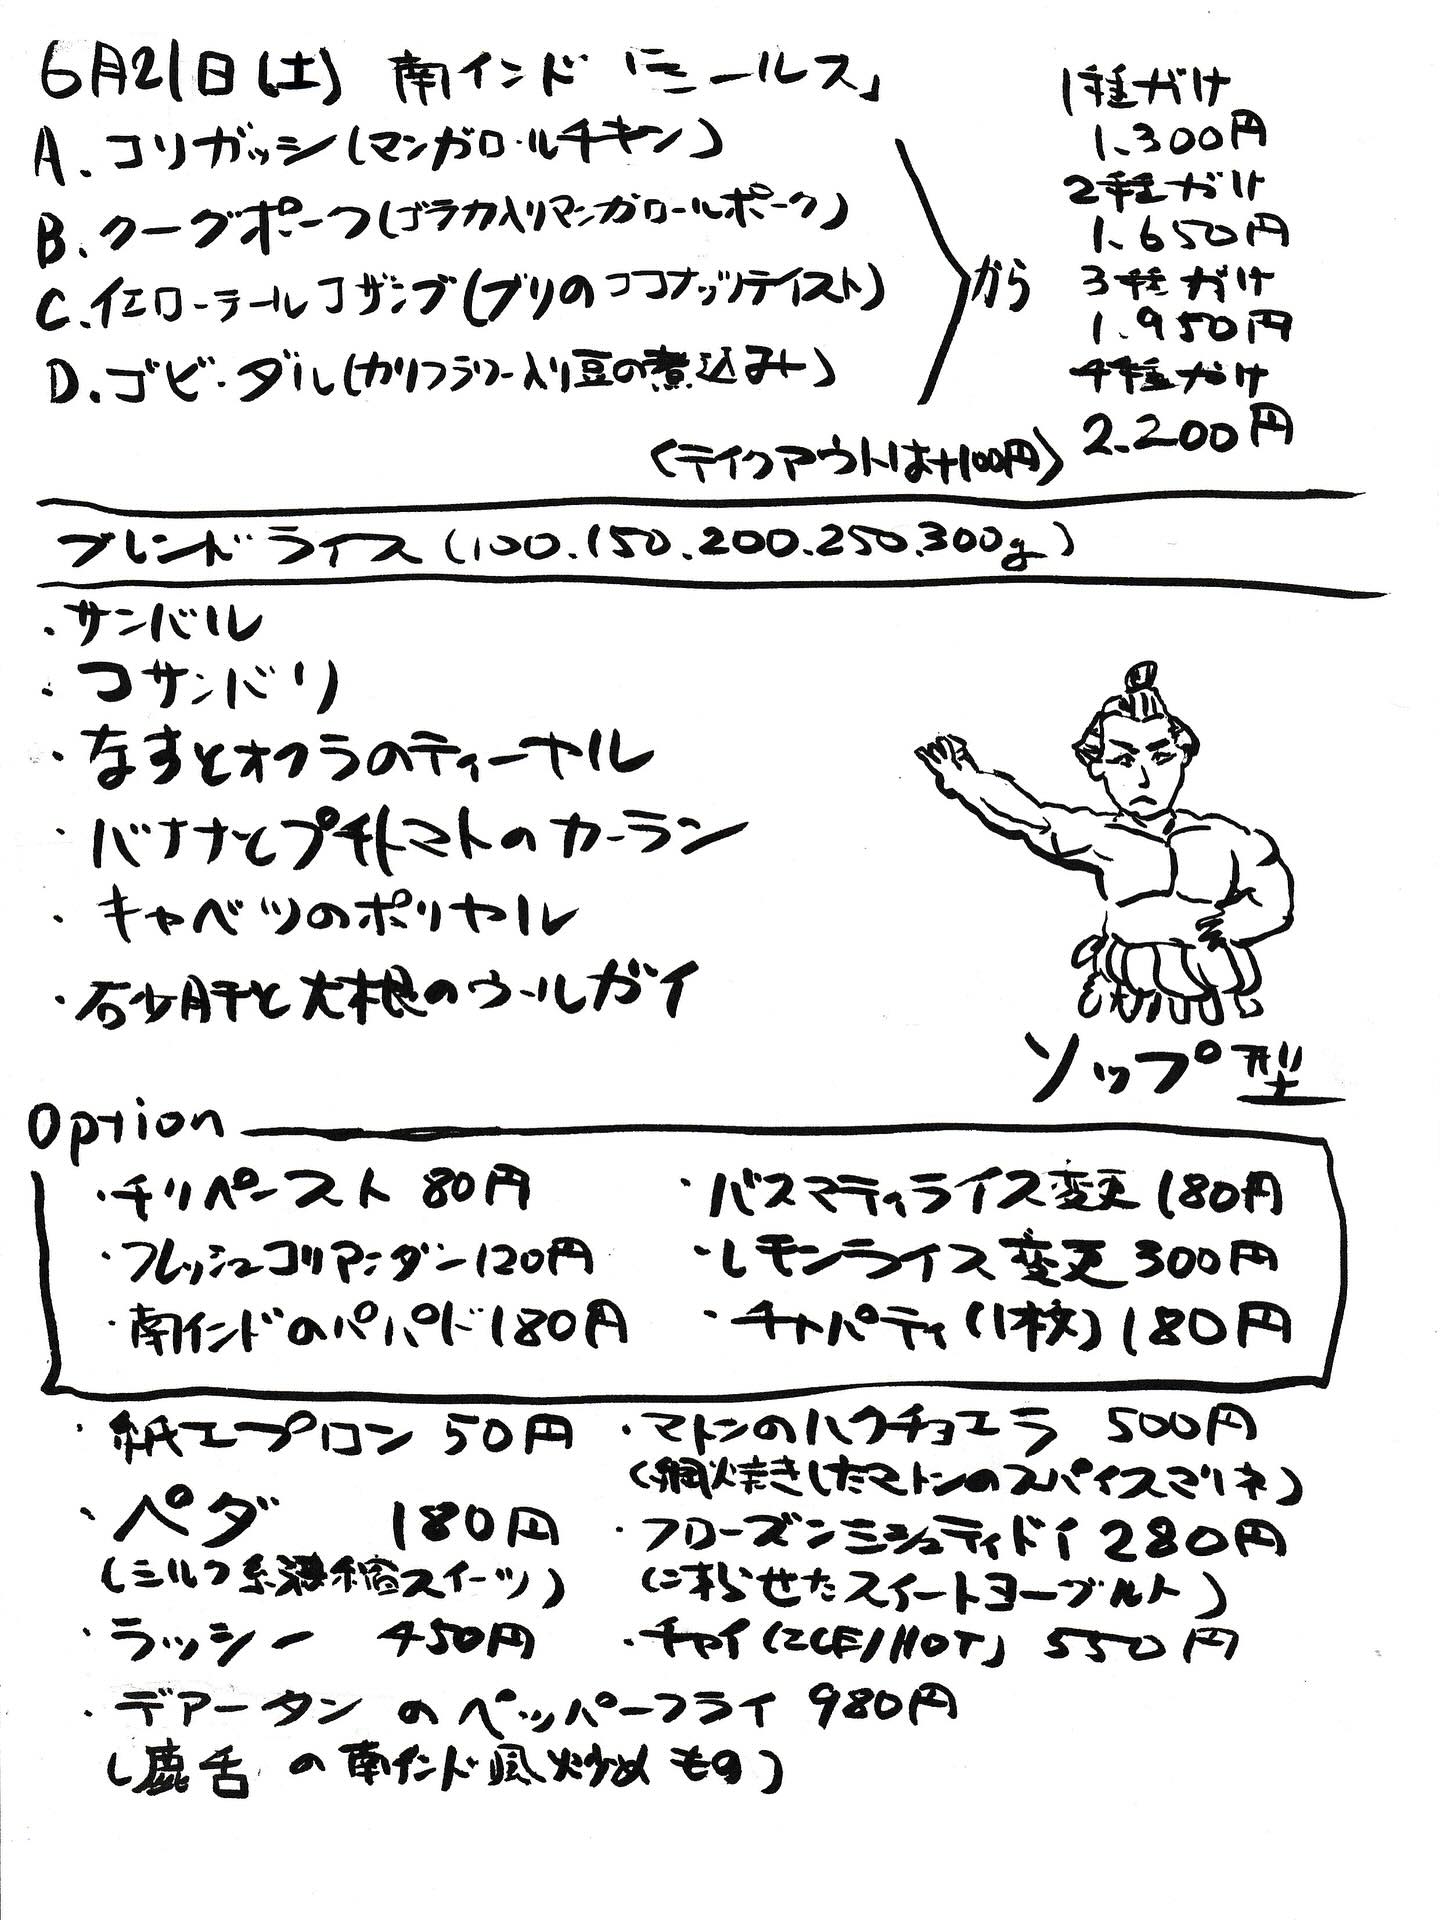 6月21日(土) 南インド「ミールス」
A. コリガッシ(マンガロールチキン)
B. クーグポーク(ゴラカ入りマンガロールポーク)
C. イエローテールコザンブ(ブリのココナッツテイスト)
D. ゴビ・ダル(カリフラワー入り豆の煮込み)
から
1種がけ
1.300円
2種がけ
1.650円
3種がけ
1.950円
4種がけ
2.200円
〈テイクアウトは+100円〉
ブレンドライス(100.150.200.250.300g)
・サンバル
・コサンバリ
・なすとオクラのティーヤル
・バナナとプチトマトのカーラン
・キャベツのポリヤル
・砂肝と大根のウールガイ
ソップ型
Option
・チリペースト 80円
・フレッシュコリアンダー120円
・南インドのパパド180円
・バスマティライス変更 180円
・レモンライス変更 300円
・チャパティ(1枚)180円
・紙エプロン 50円
・ペダ 180円
(ミルク系濃縮スイーツ)
・ラッシー 450円
・マトンのハクチョエラ 500円
(網焼きしたマトンのスパイスマリネ)
・フローズンミシュティドイ 280円
(凍らせたスイートヨーグルト)
・チャイ(ICE/HOT) 550円
・デアータンのペッパーフライ 980円
(鹿舌の南インド風炒めもの)